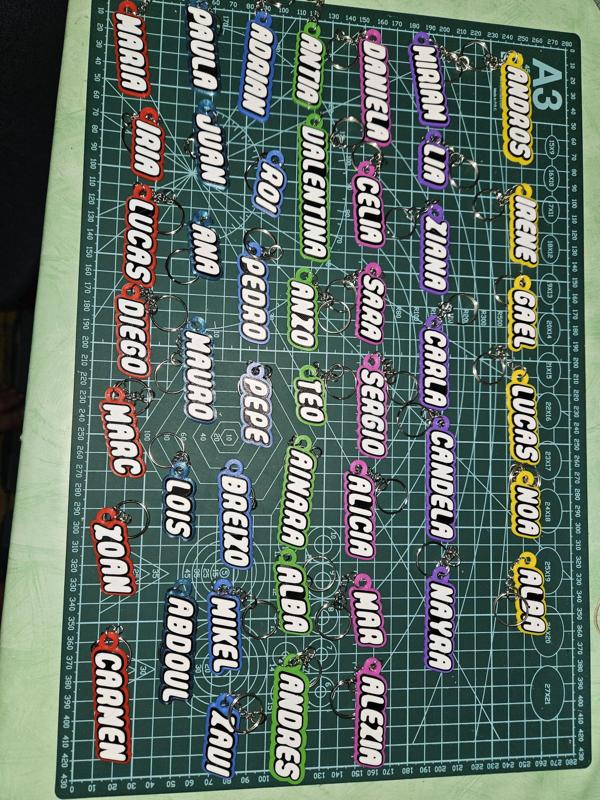 A3
ANDROS
IRENE
GAEL
LUCAS
NOA
ALBA
MIRIAN
LIA
XIANA
CARLA
CANDELA
NAYRA
DANIELA
CELIA
SARA
SERGIO
ALICIA
MAR
ALEXIA
ANTIA
VALENTINA
ANXO
TEO
AINARA
ALBA
ANDRES
ADRIAN
ROI
PEDRO
PEPE
BREIXO
MIKEL
XAVI
PAULA
JUAN
ANA
MAURO
LOIS
ABDOUL
MARIA
IRIA
LUCAS
DIEGO
MARC
XOAN
CARMEN